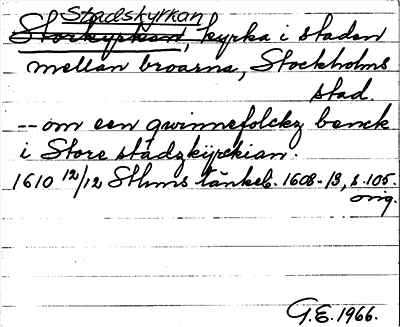 Stadskyrkan
Storkyrkan, kyrka i staden
mellan broarna, Stockholms
stad.
-- om een qwinnefolckz benck
i Store stadzkÿrckian.
1610 12/12 Sthms tänkeb. 1608-13, s. 105.
orig.
G.E. 1966.